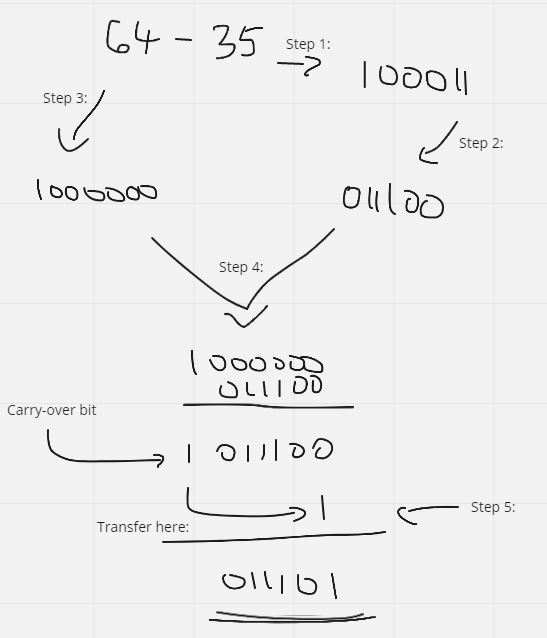 64 - 35
Step 1:
100011
Step 3:
Step 2:
1000000
011100
Step 4:
1000000
011100
Carry-over bit
1 011100
1
Step 5:
Transfer here:
011101